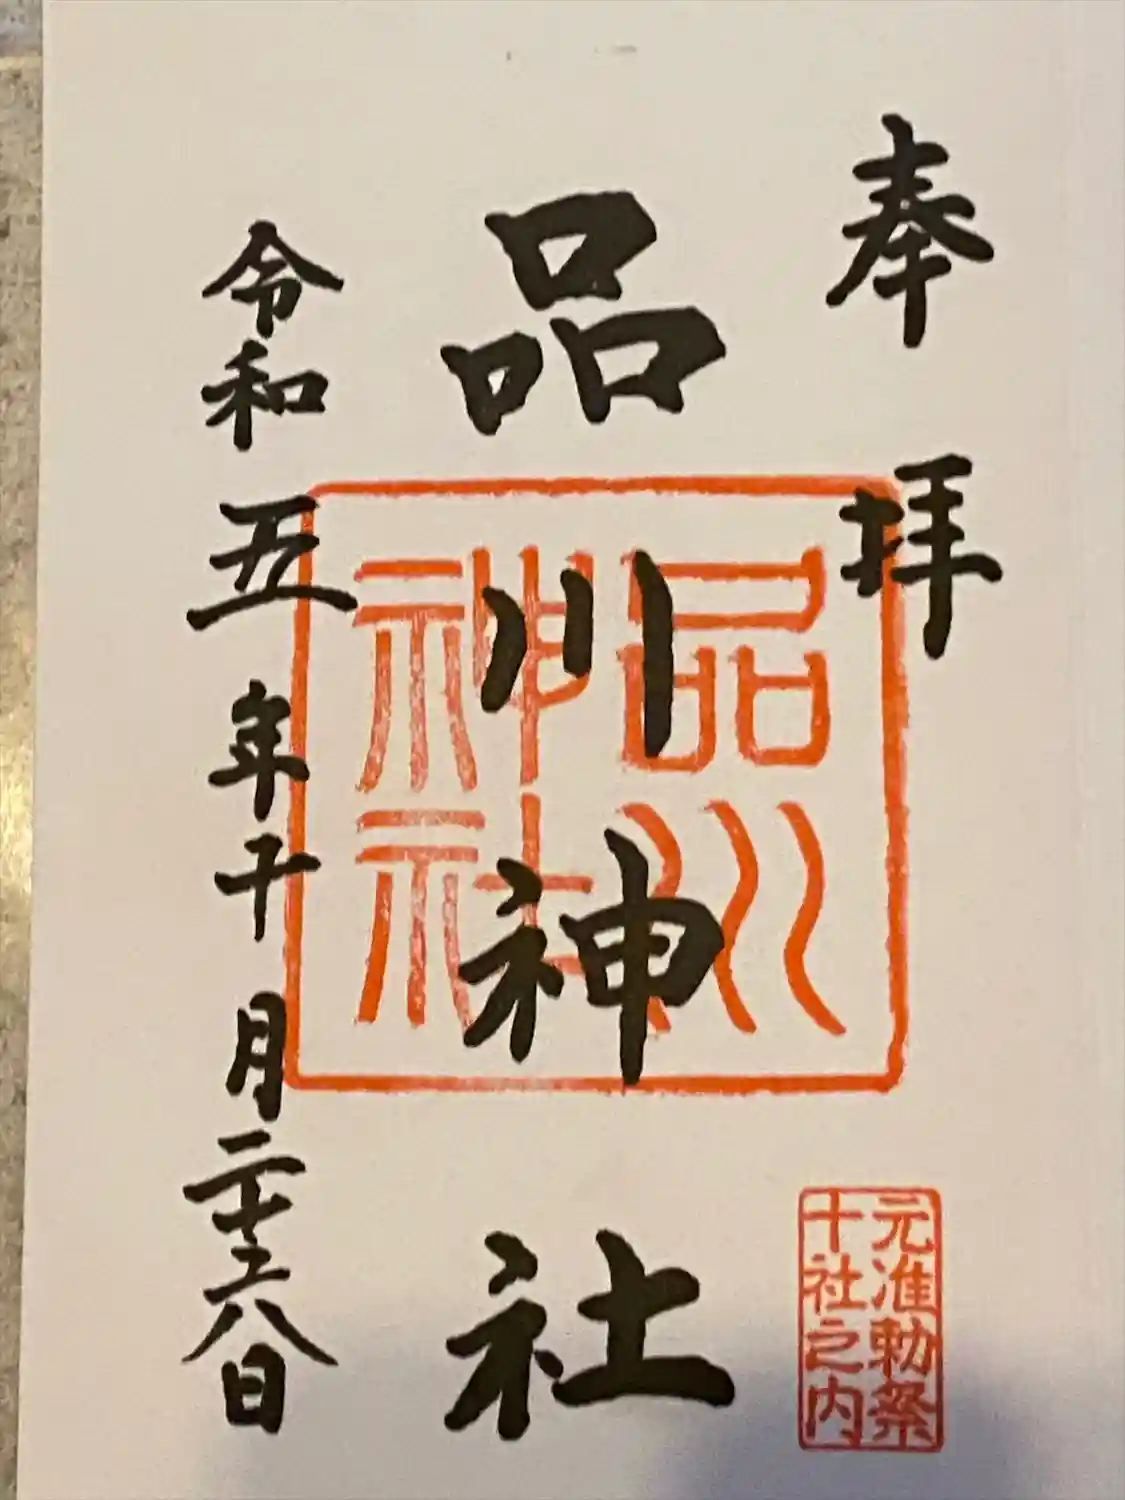 奉拝
元准勅祭
十社之内
品川神社
品川
神社
令和五年十月二十六日